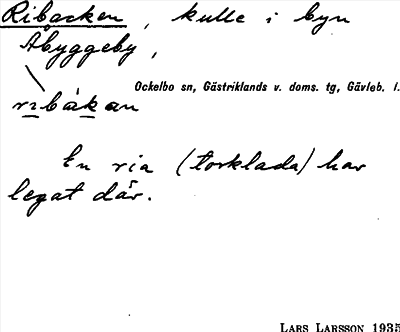 Ribacken, kulle i byn
Åbyggeby,
Ockelbo sn, Gästriklands v. doms. tg, Gävleb. l.
rɪbákan
En ria (torklada) har
legat där.
LARS LARSSON 1935